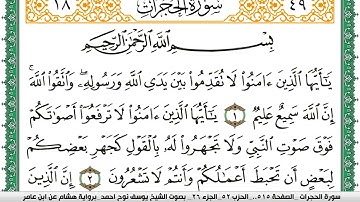 ١٨ سُورَةُ الحُجُرَاتِ ٤٩
بِسْمِ اللَّهِ الرَّحْمَٰنِ الرَّحِيمِ
يَـٰٓأَيُّهَا ٱلَّذِينَ ءَامَنُوا۟ لَا تُقَدِّمُوا۟ بَيْنَ يَدَىِ ٱللَّهِ وَرَسُولِهِۦ ۖ وَٱتَّقُوا۟ ٱللَّهَ ۚ
إِنَّ ٱللَّهَ سَمِيعٌ عَلِيمٌ ١ يَـٰٓأَيُّهَا ٱلَّذِينَ ءَامَنُوا۟ لَا تَرْفَعُوٓا۟ أَصْوَٰتَكُمْ
فَوْقَ صَوْتِ ٱلنَّبِىِّ وَلَا تَجْهَرُوا۟ لَهُۥ بِٱلْقَوْلِ كَجَهْرِ بَعْضِكُمْ
لِبَعْضٍ أَن تَحْبَطَ أَعْمَـٰلُكُمْ وَأَنتُمْ لَا تَشْعُرُونَ ٢ إِنَّ ٱلَّذِينَ
سورة الحجرات _الصفحة ٥١٥ _ الحزب ٥٢_ الجزء ٢٦_ بصوت الشيخ يوسف نوح احمد_برواية هشام عن ابن عامر